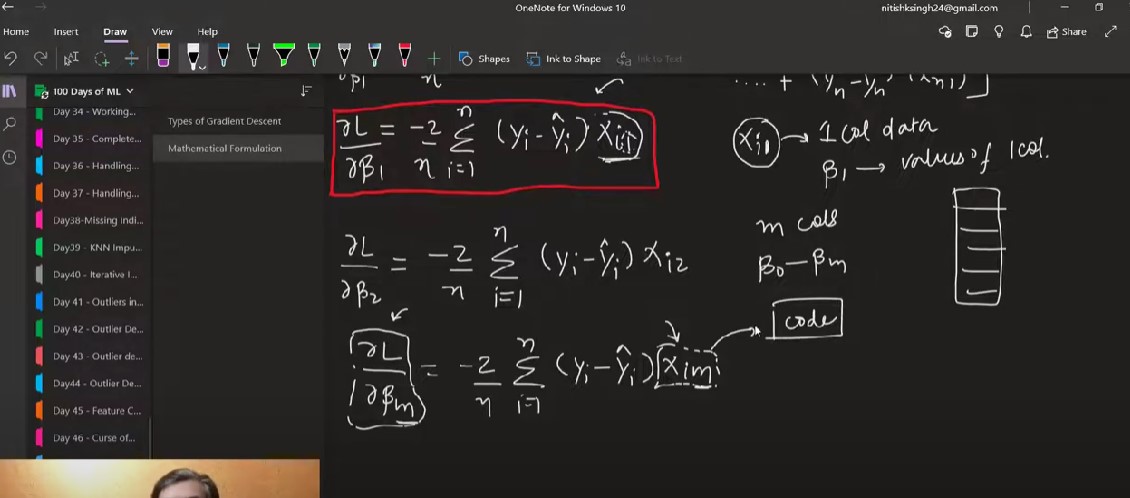 OneNote for Windows 10
nitishksingh24@gmail.com
Home Insert Draw View Help
Share
Shapes Ink to Shape Ink to Text
100 Days of ML
Day 34 - Working...
Day 35 - Complete...
Day 36 - Handling...
Day 37 - Handling...
Day38-Missing Indi...
Day39 - KNN Impu...
Day40 - Iterative I...
Day 41 - Outliers in...
Day 42 - Outlier De...
Day 43 - Outlier de...
Day44 - Outlier De...
Day 45 - Feature C...
Day 46 - Curse of...
Types of Gradient Descent
Mathemetical Formulation
∂β₁ n
.... + (yₙ - ŷₙ) (xₙ₁)]
∂L/∂β₁ = -2/n Σ_{i=1}^{n} (yᵢ - ŷᵢ) xᵢ₁
xᵢ₁ → 1 col data
β₁ → values of 1 col.
m cols
β₀ — βₘ
∂L/∂β₂ = -2/n Σ_{i=1}^{n} (yᵢ - ŷᵢ) xᵢ₂
code
∂L/∂βₘ = -2/n Σ_{i=1}^{n} (yᵢ - ŷᵢ) xᵢₘ